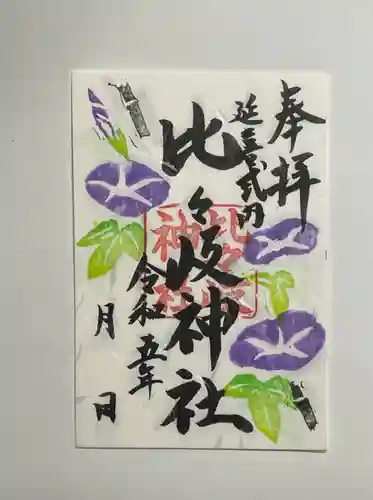 奉拝
延喜式内
比々岐神社
令和五年
月 日
比々岐神社